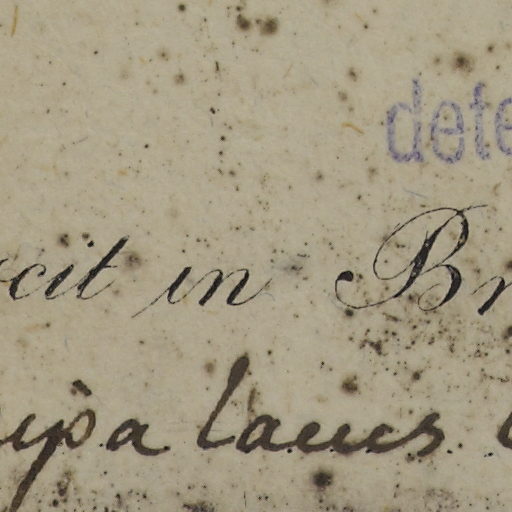 dete
cit in Br
ipa laeus